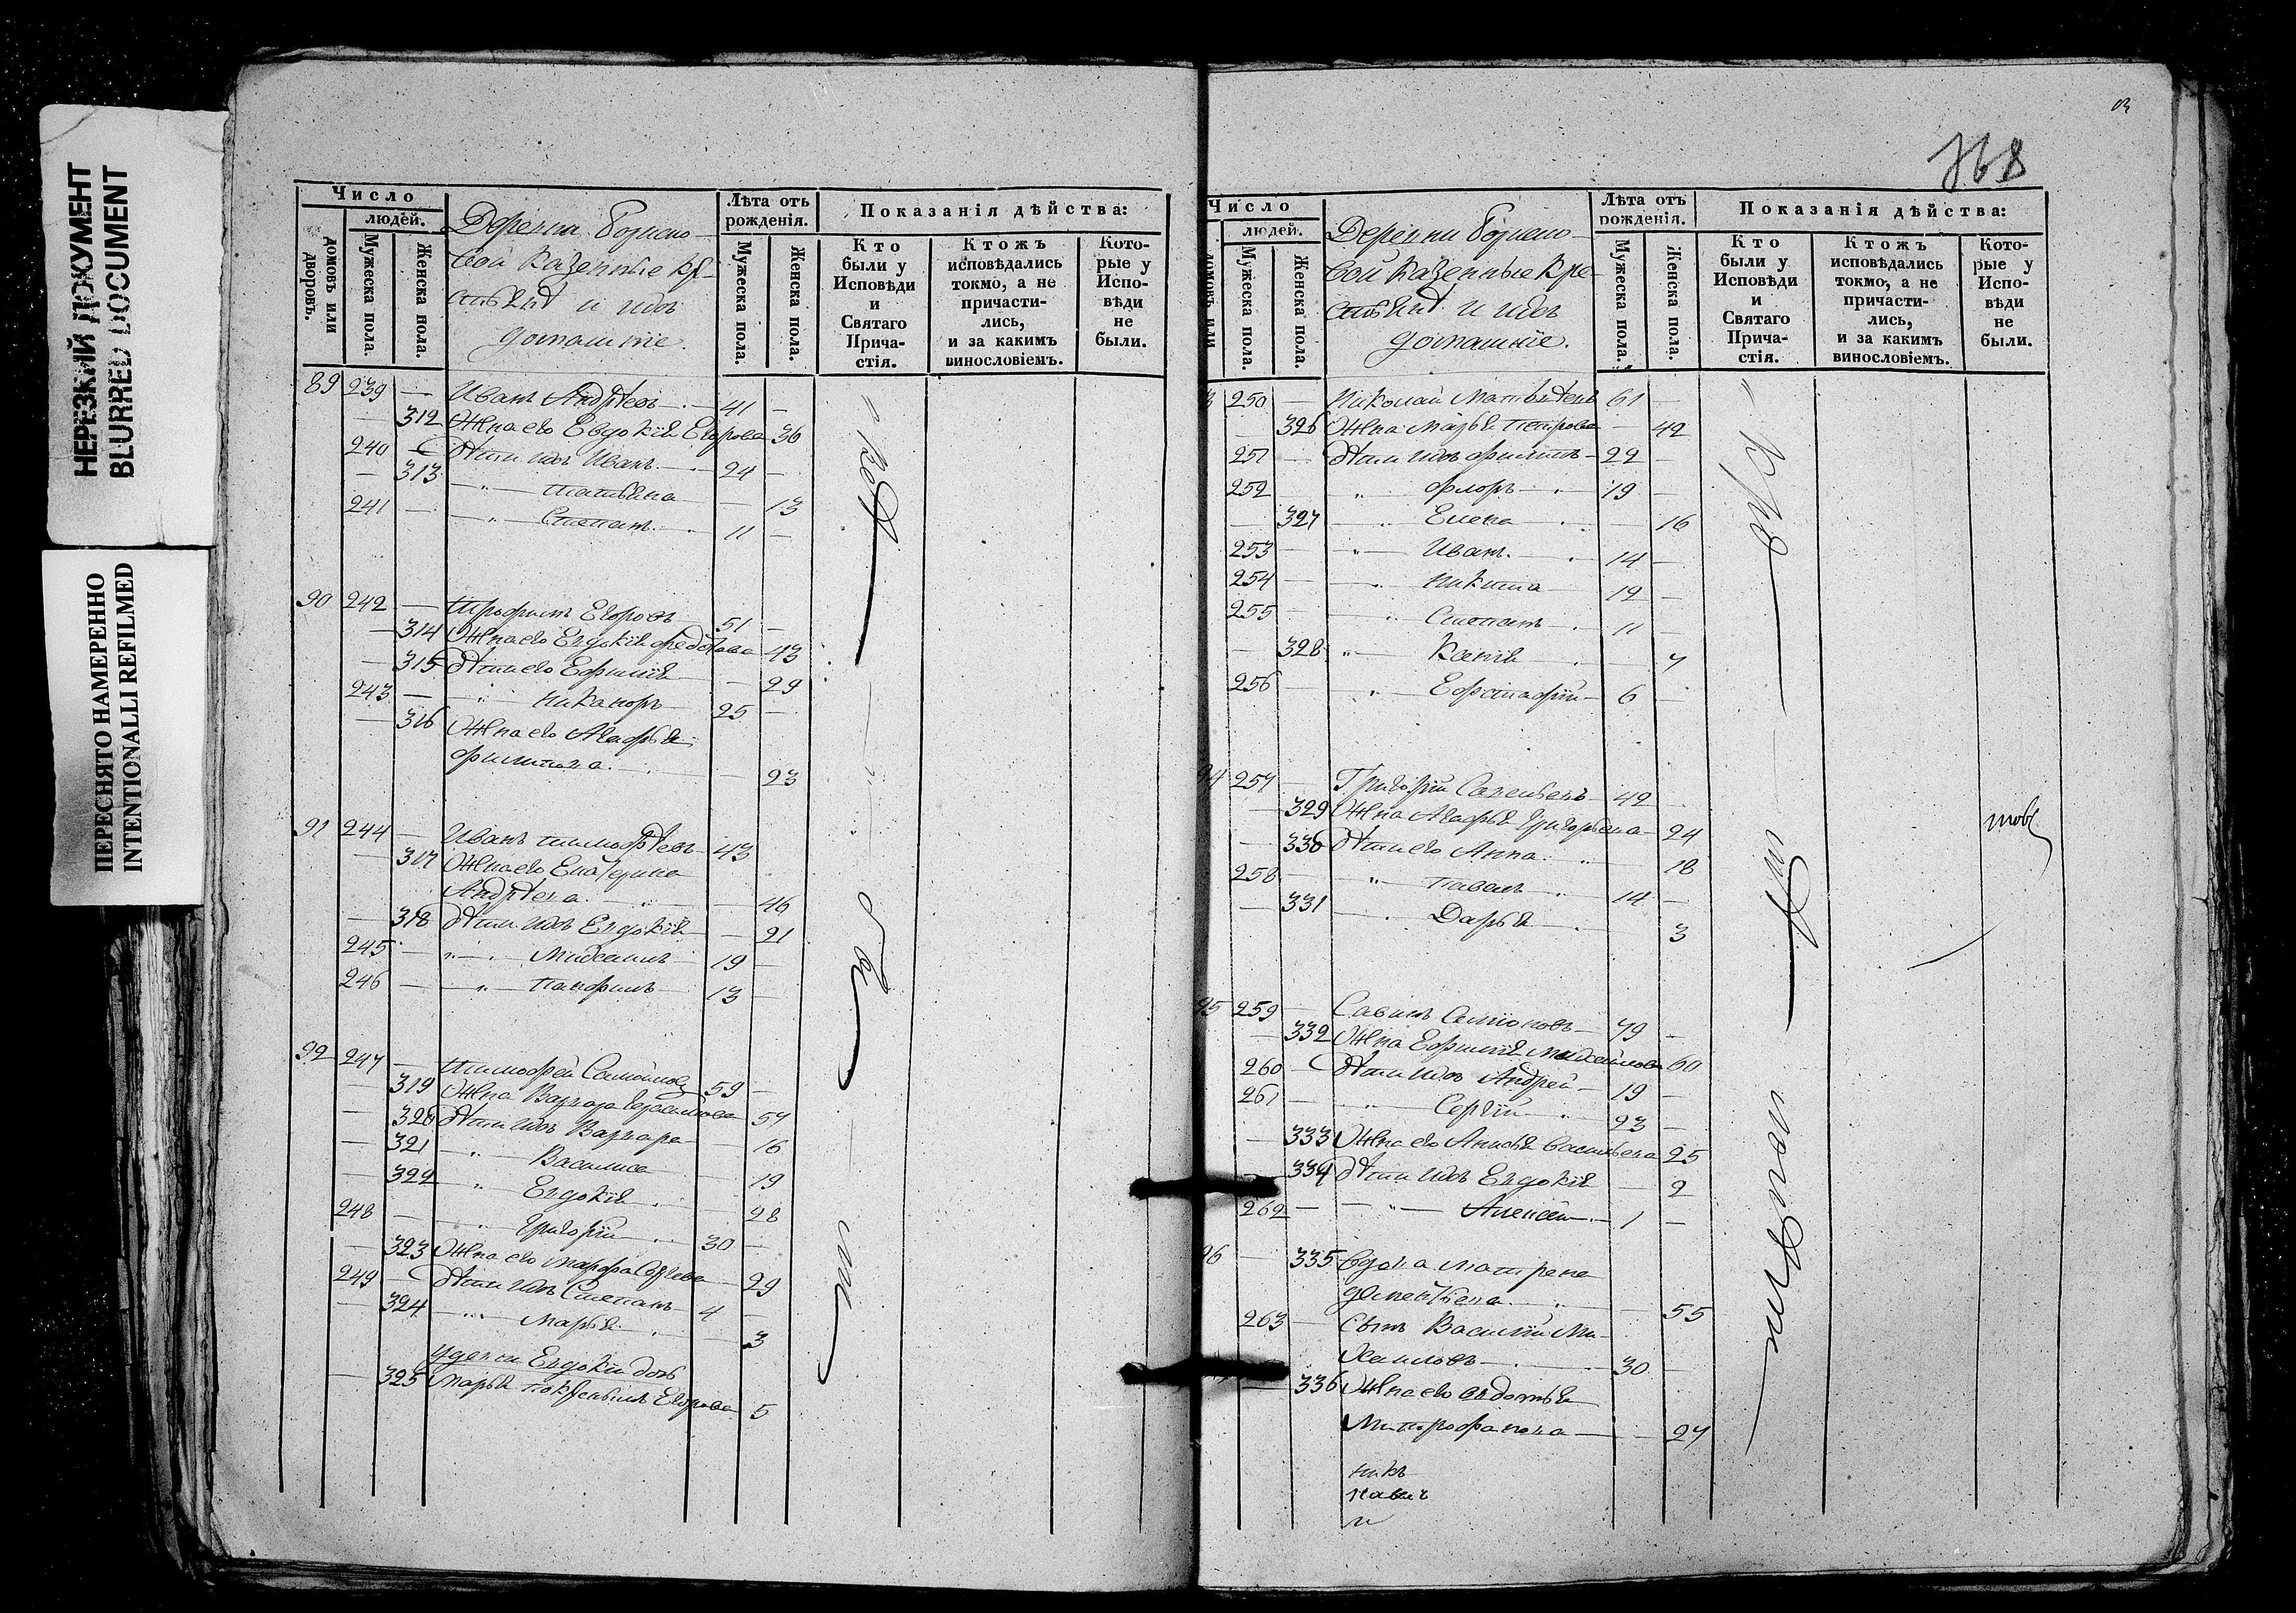 НЕРЕЗКИЙ ДОКУМЕНТ
BLURRED DOCUMENT
ПЕРЕСНЯТО НАМЕРЕННО
INTENTIONALLI REFILMED
Число
людей.
домовъ или дворовъ.
Мужеска пола.
Женска пола.
Деревни
вой Казенные кре-
стьяне и ихъ
домашнiе.
Лѣта отъ рожденія.
Мужеска пола.
Женска пола.
Показанія дѣйства:
Кто были у Исповѣди и Святаго Прича-стія.
Ктожъ исповѣдались токмо, а не причасти-лись, и за какимъ винословіемъ.
Кото-рые у Испо-вѣди не были.
89 239 — Иванъ Андрѣевъ 41 —
— 312 Жена его Евдокiя Егорова 36
240 — Дѣти ихъ Иванъ 24 —
— 313 „ Татьяна — 13
241 — „ Степанъ 11 —
90 242 — Трофимъ Егоровъ 51 —
— 314 Жена его Евдокiя 43
— 315 Дѣти его Ефимiя — 29
243 — „ Никаноръ 25 —
— 316 Жена его Агафья
Филипова — 23
91 244 — Иванъ Тимофѣевъ 43
— 317 Жена его Екатерина
Андрѣева — 46
— 318 Дѣти ихъ Евдокiя — 21
245 — „ Михаилъ 19 —
246 — „ Панфилъ 13 —
92 247 — Тимофей Самойловъ 59 —
— 319 Жена Варвара Герасимова 57
— 320 Дѣти ихъ Варвара — 16
— 321 „ Василиса — 19
— 322 „ Евдокiя — 28
248 — „ Григорiй 30 —
— 323 Жена его Марфа 29
249 — Дѣти ихъ Степанъ 4 —
— 324 „ Марья — 3
У девки Евдокiи дочь
— 325 Марья Егорова 5
368
Число
людей.
домовъ или
Мужеска пола
Женска пола.
Деревни
вой Казенные кре-
стьяне и ихъ
домашнiе.
Лѣта отъ рожденія.
Мужеска пола.
Женска пола.
Показанія дѣйства:
Кто были у Исповѣди и Святаго Прича-стія.
Ктожъ исповѣдались токмо, а не причасти-лись, и за какимъ винословіемъ.
Кото-рые у Испо-вѣди не были.
250 — Николай Матвѣевъ 61 —
— 326 Жена Марья Петрова — 42
251 — Дѣти ихъ Филипъ 22 —
252 „ Флоръ 19 —
— 327 „ Елена — 16
253 — „ Иванъ 14 —
254 — „ Никита 12 —
255 „ Степанъ 11 —
— 328 „ Ксенiя — 7
256 „ Ефстафiй 6 —
94 257 — Григорiй Савельевъ 42 —
— 329 Жена Агафья Григорьева 24
— 330 Дѣти его Анна 18
258 — „ Павелъ 14 —
— 331 „ Дарья 3
95 259 — Савинъ Семiоновъ 79 —
— 332 Жена Ефимiя Михайлова 60
260 — Дѣти ихъ Андрей 19 —
261 — „ Сергiй 23 —
— 333 Жена его Анисья Васильева 25
— 334 Дѣти ихъ Евдокiя — 2
262 — „ Алексей 1 —
96 — 335 Вдова Матрена
Дементьева — 55
263 — Сынъ Василiй Ми-
хайловъ 30 —
— 336 Жена его Авдотья
Митрофанова — 27